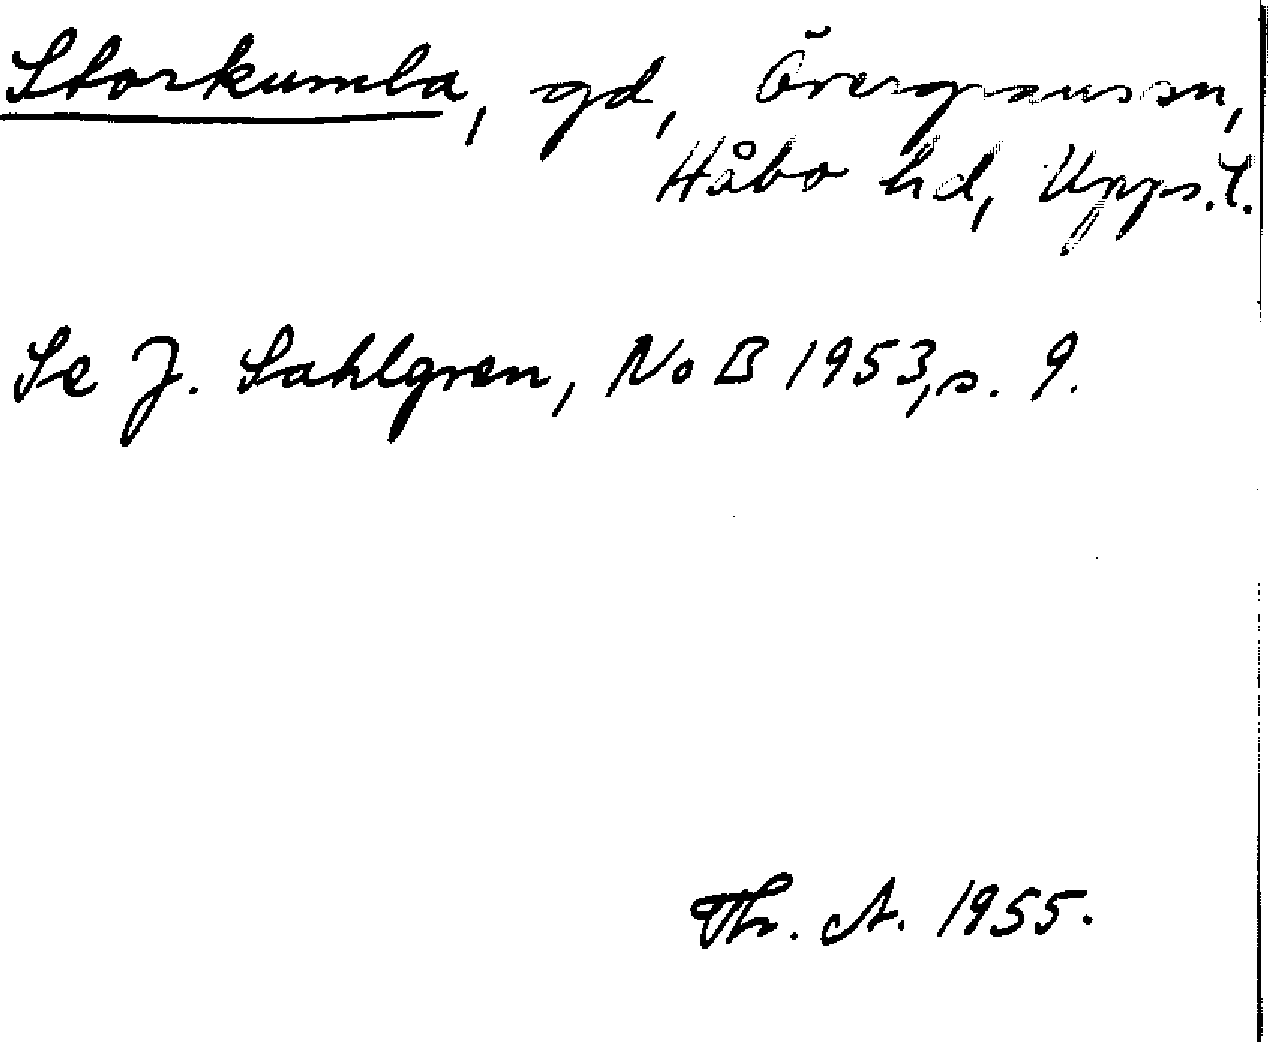 Storkumla, gd, Övergrans sn,
Håbo hd, Upps. l.
Se J. Sahlgren, NoB 1953, s. 9.
Th. A. 1955.